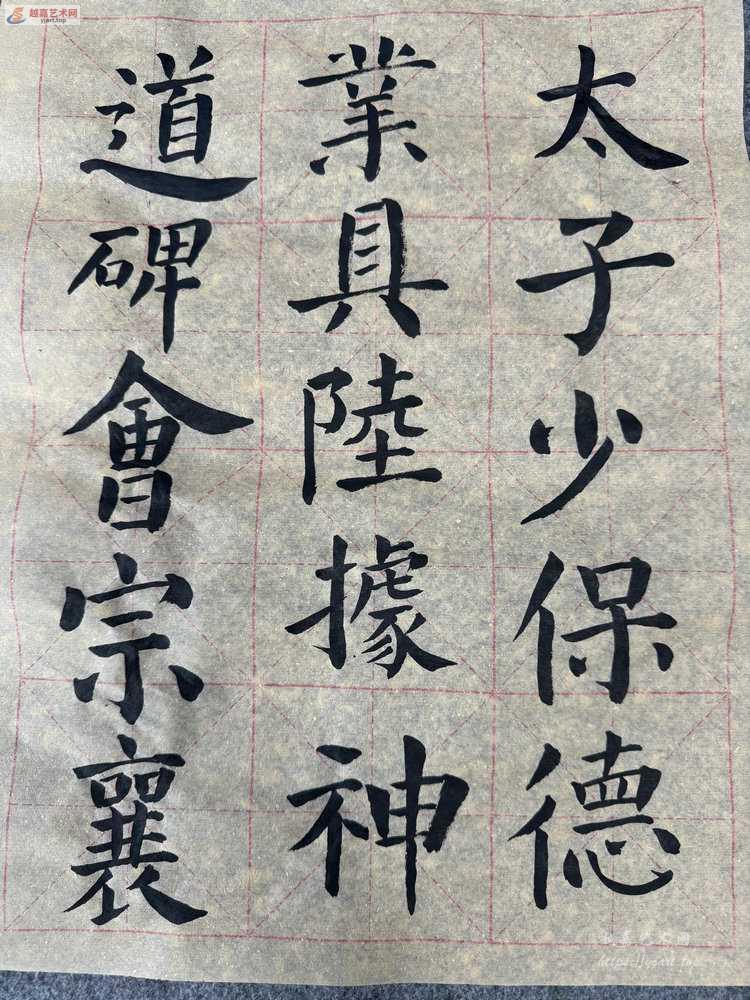 太子少保德
業具陸據神
道碑會宗襄
越嘉艺术网
yjart.top
越嘉艺术网
https://yjart.top